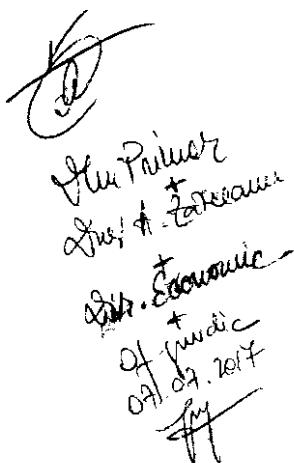 Dlui Primar
+
Dnei A.
+
Dir. Economic
+
Of juridic
07.07.2017